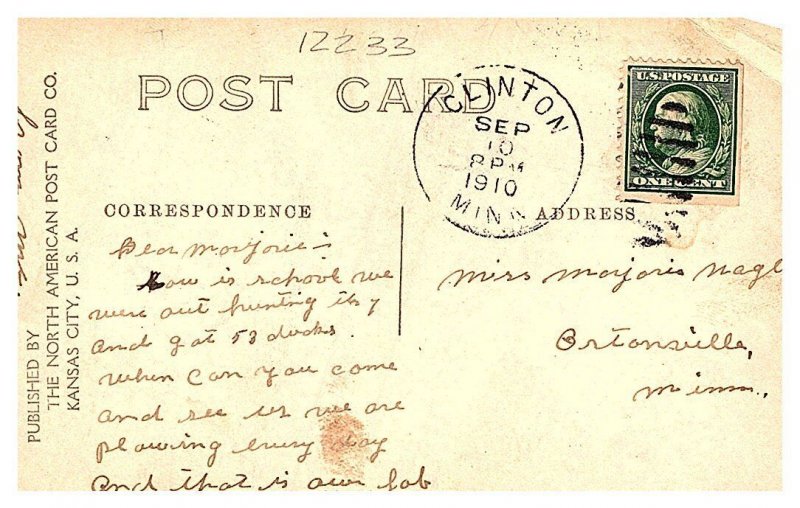 12233
POST CARD
CLINTON
SEP
10
8PM
1910
MINN
U.S. POSTAGE
ONE CENT
CORRESPONDENCE
ADDRESS
Dear Marjorie:-
How is school we
were out hunting
and got 53 ducks.
when can you come
and see us we are
plowing every day
and that is our job
Miss Marjorie Nagl
Ortonville,
Minn.
PUBLISHED BY
THE NORTH AMERICAN POST CARD CO.
KANSAS CITY, U. S. A.